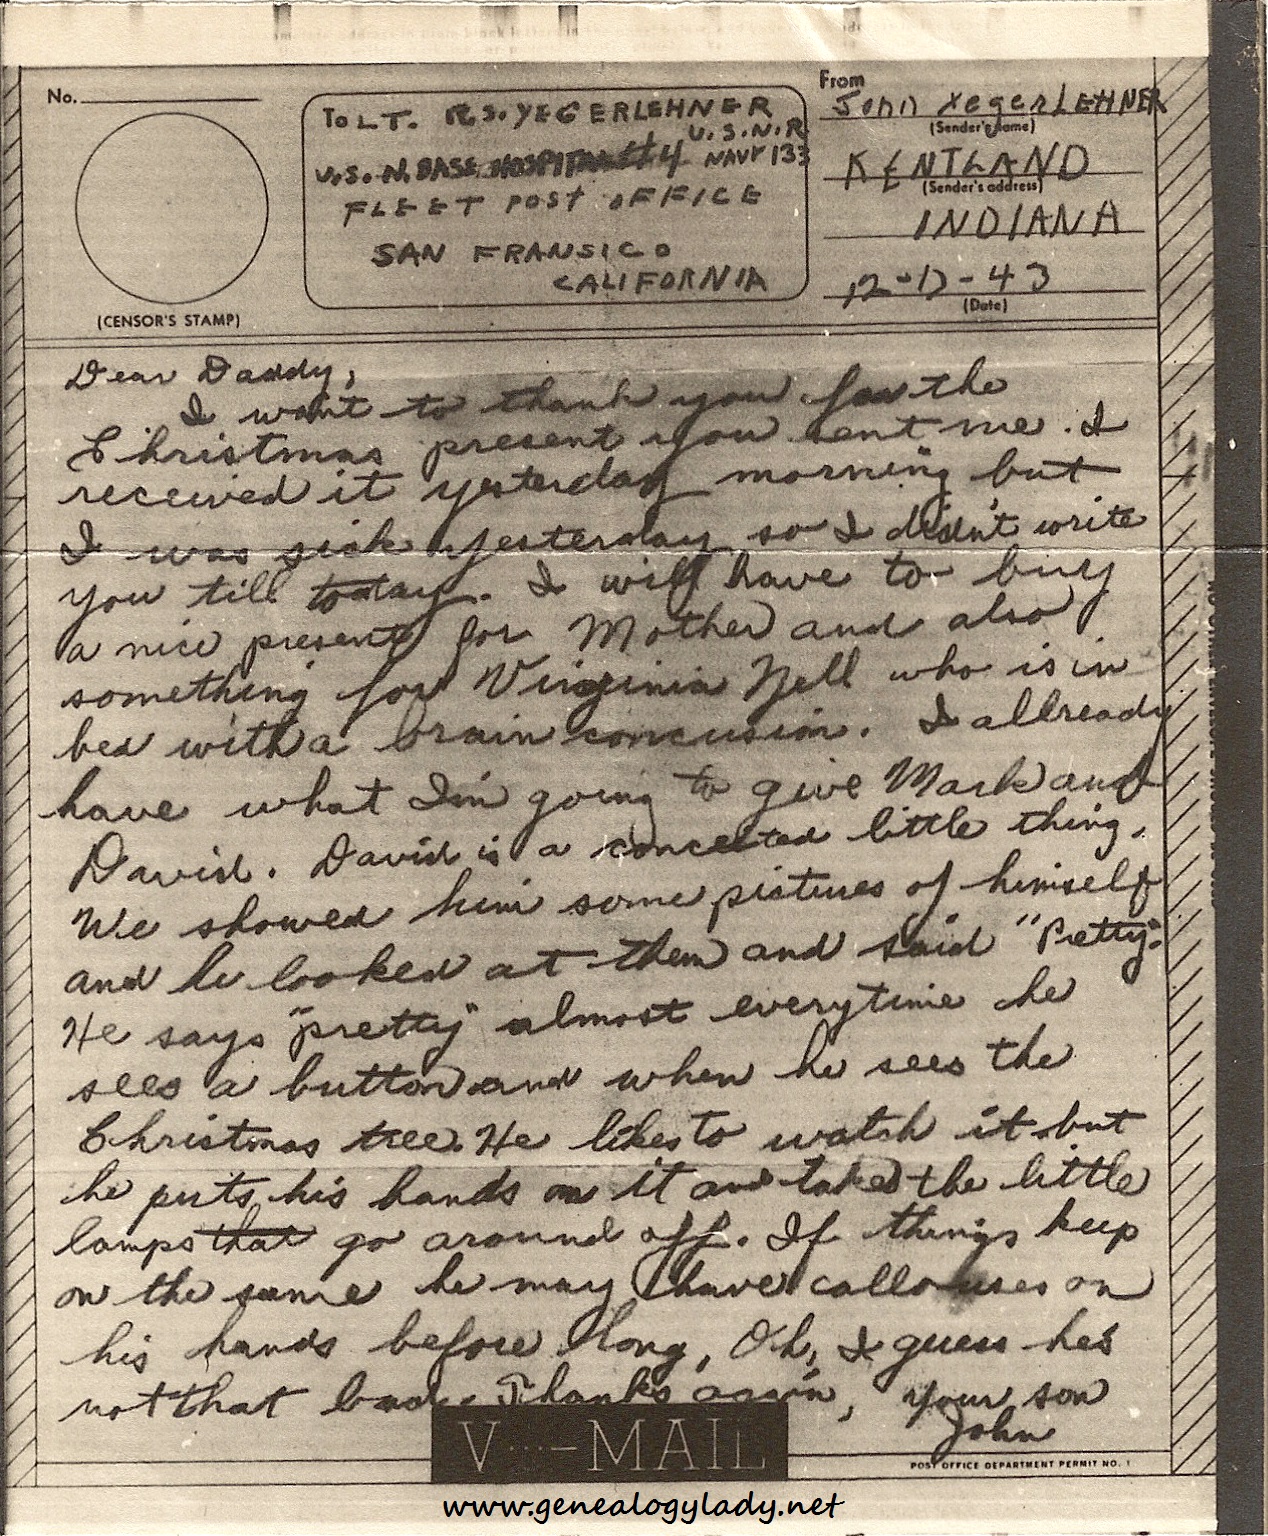 No.
(CENSOR'S STAMP)
To LT. R.S. YEGERLEHNER
U.S.N.R
U.S.N. BASE HOSPITAL #4 NAVY 133
FLEET POST OFFICE
SAN FRANSICO
CALIFORNIA
From
John YegerLEHNER
(Sender's name)
KENTLAND
(Sender's address)
INDIANA
(Date)
Dear Daddy,
I want to thank you for the
Christmas present you sent me. I
received it yesterday morning but
I was sick yesterday so I didn't write
you till today. I will have to buy
a nice present for Mother and also
something for Virginia Nell who is in
bed with a brain concusion. I allready
have what I'm going to give Mark and
David. David is a conceited little thing.
We showed him some pictures of himself
and he looked at them and said "Pretty".
He says "pretty" almost everytime he
sees a button and when he sees the
Christmas tree. He likes to watch it but
he puts his hands on it and takes the little
lamps that go around off. If things keep
on the same he may have callouses on
his hands before long, Oh, I guess he's
not that bad. Thanks again, your son
John
V···–MAIL
POST OFFICE DEPARTMENT PERMIT NO. 1
www.genealogylady.net